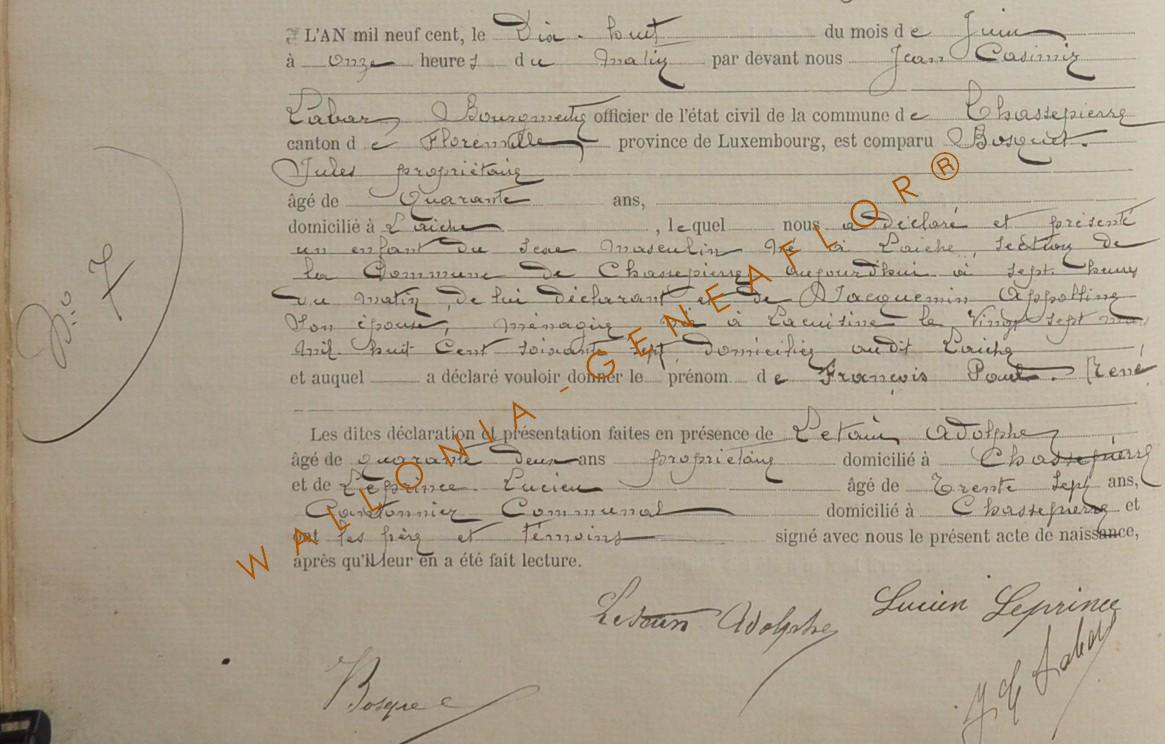 L'AN mil neuf cent, le Dix-huit du mois de Juin
à onze heures du matin par devant nous Jean Casimir
Labar, Bourgmestre officier de l'état civil de la commune de Chassepierre
canton de Florenville, province de Luxembourg, est comparu Bosquet.
Jules propriétaire
âgé de Quarante ans,
domicilié à Laiche, lequel nous a déclaré et présenté
un enfant du sexe masculin né à Laiche, section de
la Commune de Chassepierre aujourd'hui à sept heures
du matin, de lui déclarant et de Jacquemin Appolline
son épouse, ménagère née à Lacuisine le vingt sept mai
mil huit Cent soixante sept, domiciliée audit Laiche
et auquel a déclaré vouloir donner le prénom de François Paul. René
Les dites déclaration et présentation faites en présence de Letoun Adolphe,
âgé de quarante deux ans propriétaire domicilié à Chassepierre
et de Leprince Lucien âgé de Trente sept ans,
Cantonnier Communal domicilié à Chassepierre et
ont les père et témoins signé avec nous le présent acte de naissance,
après qu'il leur en a été fait lecture.
N° 7
Letoun Adolphe Lucien Leprince
Bosquet J C Labar
WALLONIA - GENEAFLOR®